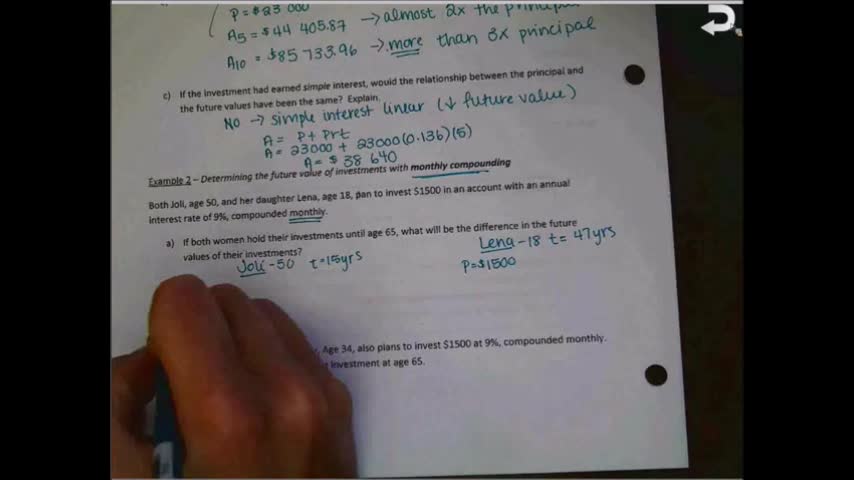 P = $23 000
A5 = $44 405.87 → almost 2x the principal
A10 = $85 733.96 → more than 3x principal
c) If the investment had earned simple interest, would the relationship between the principal and
the future values have been the same? Explain.
No → simple interest linear (↓ future value)
A = P + Prt
A = 23000 + 23000(0.136)(5)
A = $38 640
Example 2 – Determining the future value of investments with monthly compounding
Both Joli, age 50, and her daughter Lena, age 18, plan to invest $1500 in an account with an annual
interest rate of 9%, compounded monthly.
a) If both women hold their investments until age 65, what will be the difference in the future
values of their investments?
Joli - 50 t=15yrs
Lena - 18 t= 47yrs
P=$1500
Age 34, also plans to invest $1500 at 9%, compounded monthly.
investment at age 65.